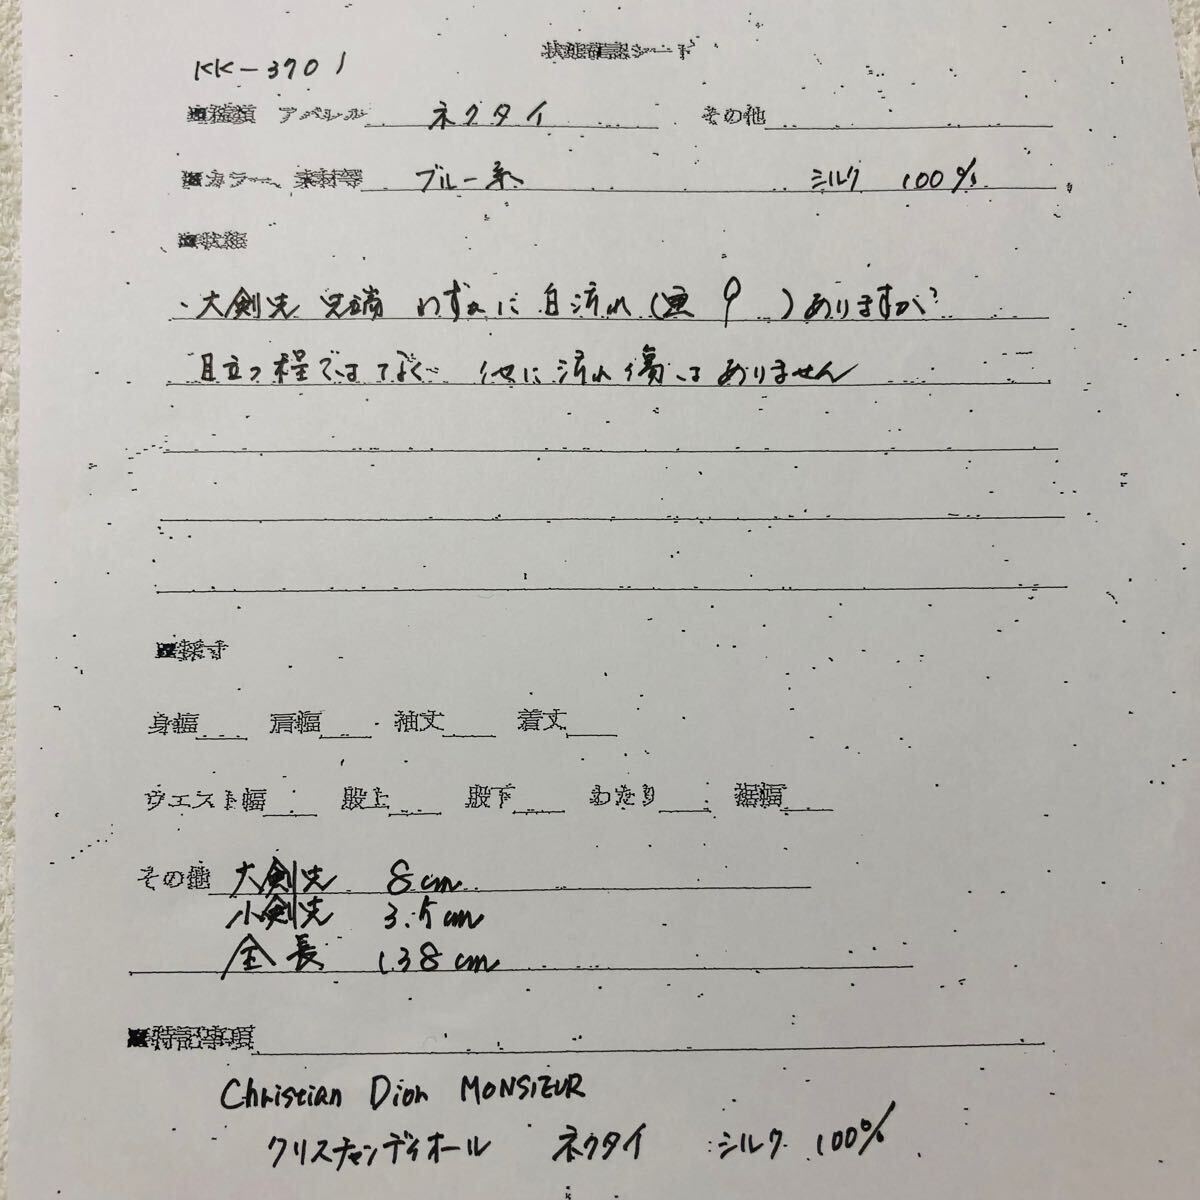 状態確認シート
KK-3701
■種類 アパレル ネクタイ その他
■カラー、素材等 ブルー系 シルク 100%
■状態
・大剣先 わずかに 汚れ ( 9 )ありますが
目立つ程ではなく 他に汚れ傷はありません
■採寸
身幅 肩幅 袖丈 着丈
ウエスト幅 股上 股下 わたり 裾幅
その他 大剣先 8cm
小剣先 3.5cm
全長 138cm
■特記事項
Christian Dior MONSIEUR
クリスチャンディオール ネクタイ シルク 100%